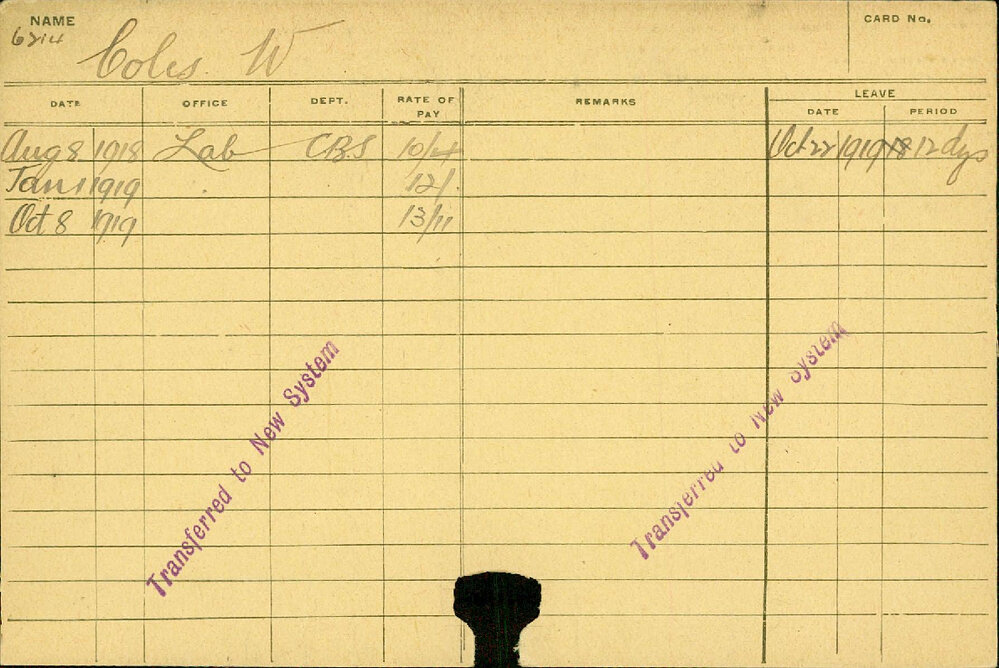 NAME CARD No.
6214 Coles. W
LEAVE
DATE OFFICE DEPT. RATE OF PAY REMARKS DATE PERIOD
Aug 8 1918 Lab CBS 10/4 Oct 22 1919 12 dys
Jan 1 1919 12/
Oct 8 1919 13/11
Transferred to New System
Transferred to New System